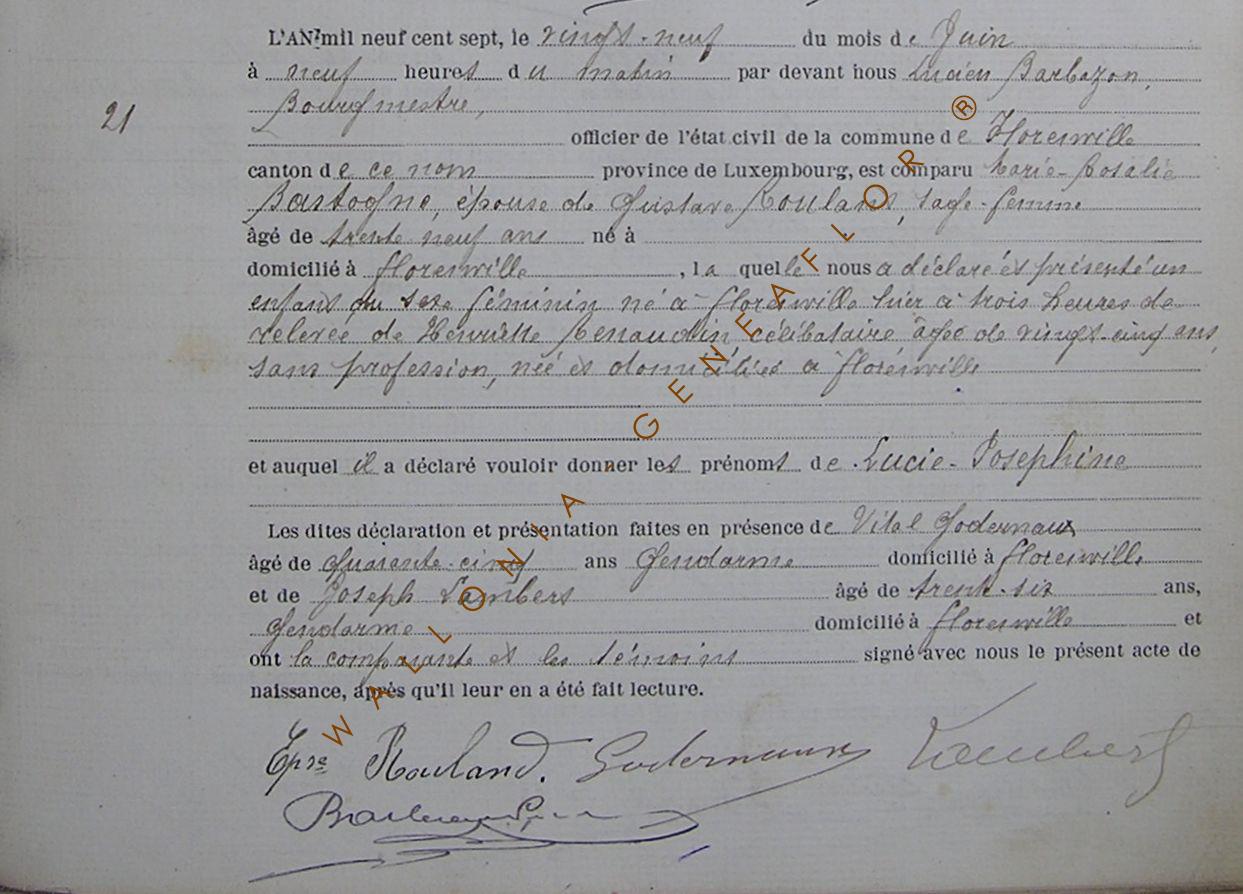 L'AN mil neuf cent sept, le vingt-neuf du mois de Juin
à neuf heures du matin par devant nous Lucien Barbazon,
Bourgmestre,
21
officier de l'état civil de la commune de Florenville
canton de ce nom province de Luxembourg, est comparu Marie-Rosalie
Bastogne, épouse de Gustave Rouland, sage-femme
âgé de trente neuf ans né à
domicilié à Florenville, laquelle nous a déclaré et présenté un
enfant du sexe féminin né à Florenville hier à trois heures de
relevée de Henriette Renaudin, célibataire âgée de vingt-cinq ans,
sans profession, née et domiciliée à Florenville
et auquel il a déclaré vouloir donner les prénoms de Lucie-Joséphine
Les dites déclaration et présentation faites en présence de Vital Godernaux
âgé de quarante-cinq ans Gendarme domicilié à Florenville
et de Joseph Lambert âgé de trente-six ans,
Gendarme domicilié à Florenville et
ont la comparante et les témoins signé avec nous le présent acte de
naissance, après qu'il leur en a été fait lecture.
Epse Rouland. Godernaux Lambert
WALLONIA - GENEAFLOR ®